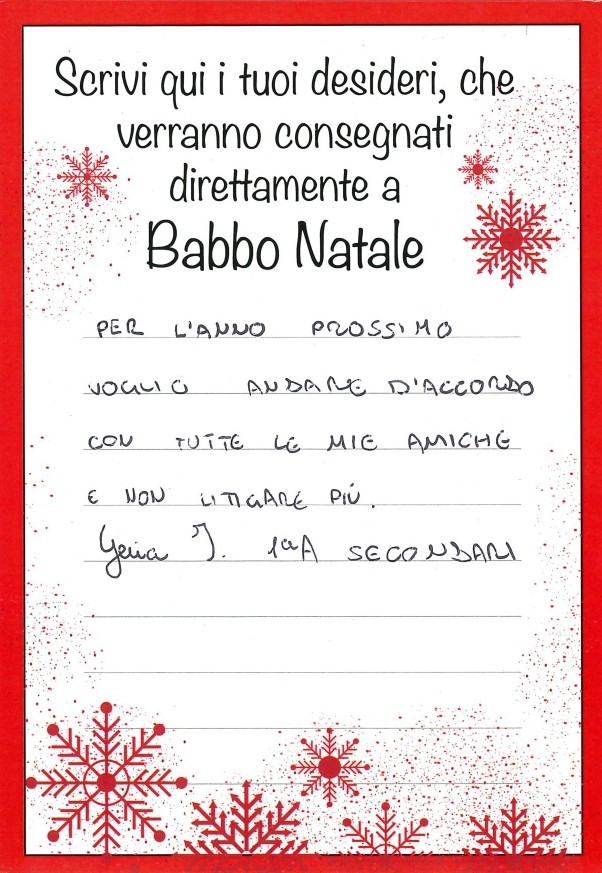 Scrivi qui i tuoi desideri, che
verranno consegnati
direttamente a
Babbo Natale
PER L'ANNO PROSSIMO
VOGLIO ANDARE D'ACCORDO
CON TUTTE LE MIE AMICHE
E NON LITIGARE PIÙ.
J. 1aA SECONDARI